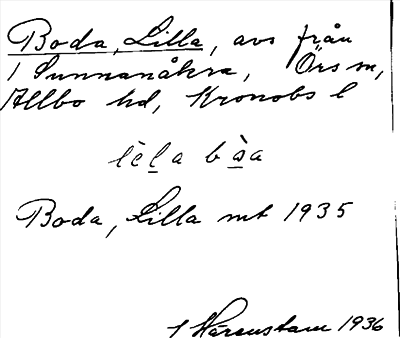 Boda, Lilla, avs från
1 Sunnanåkra, Örs sn,
Allbo hd, Kronobs l
lèla bàsa
Boda, Lilla mt 1935
Härenstam 1936